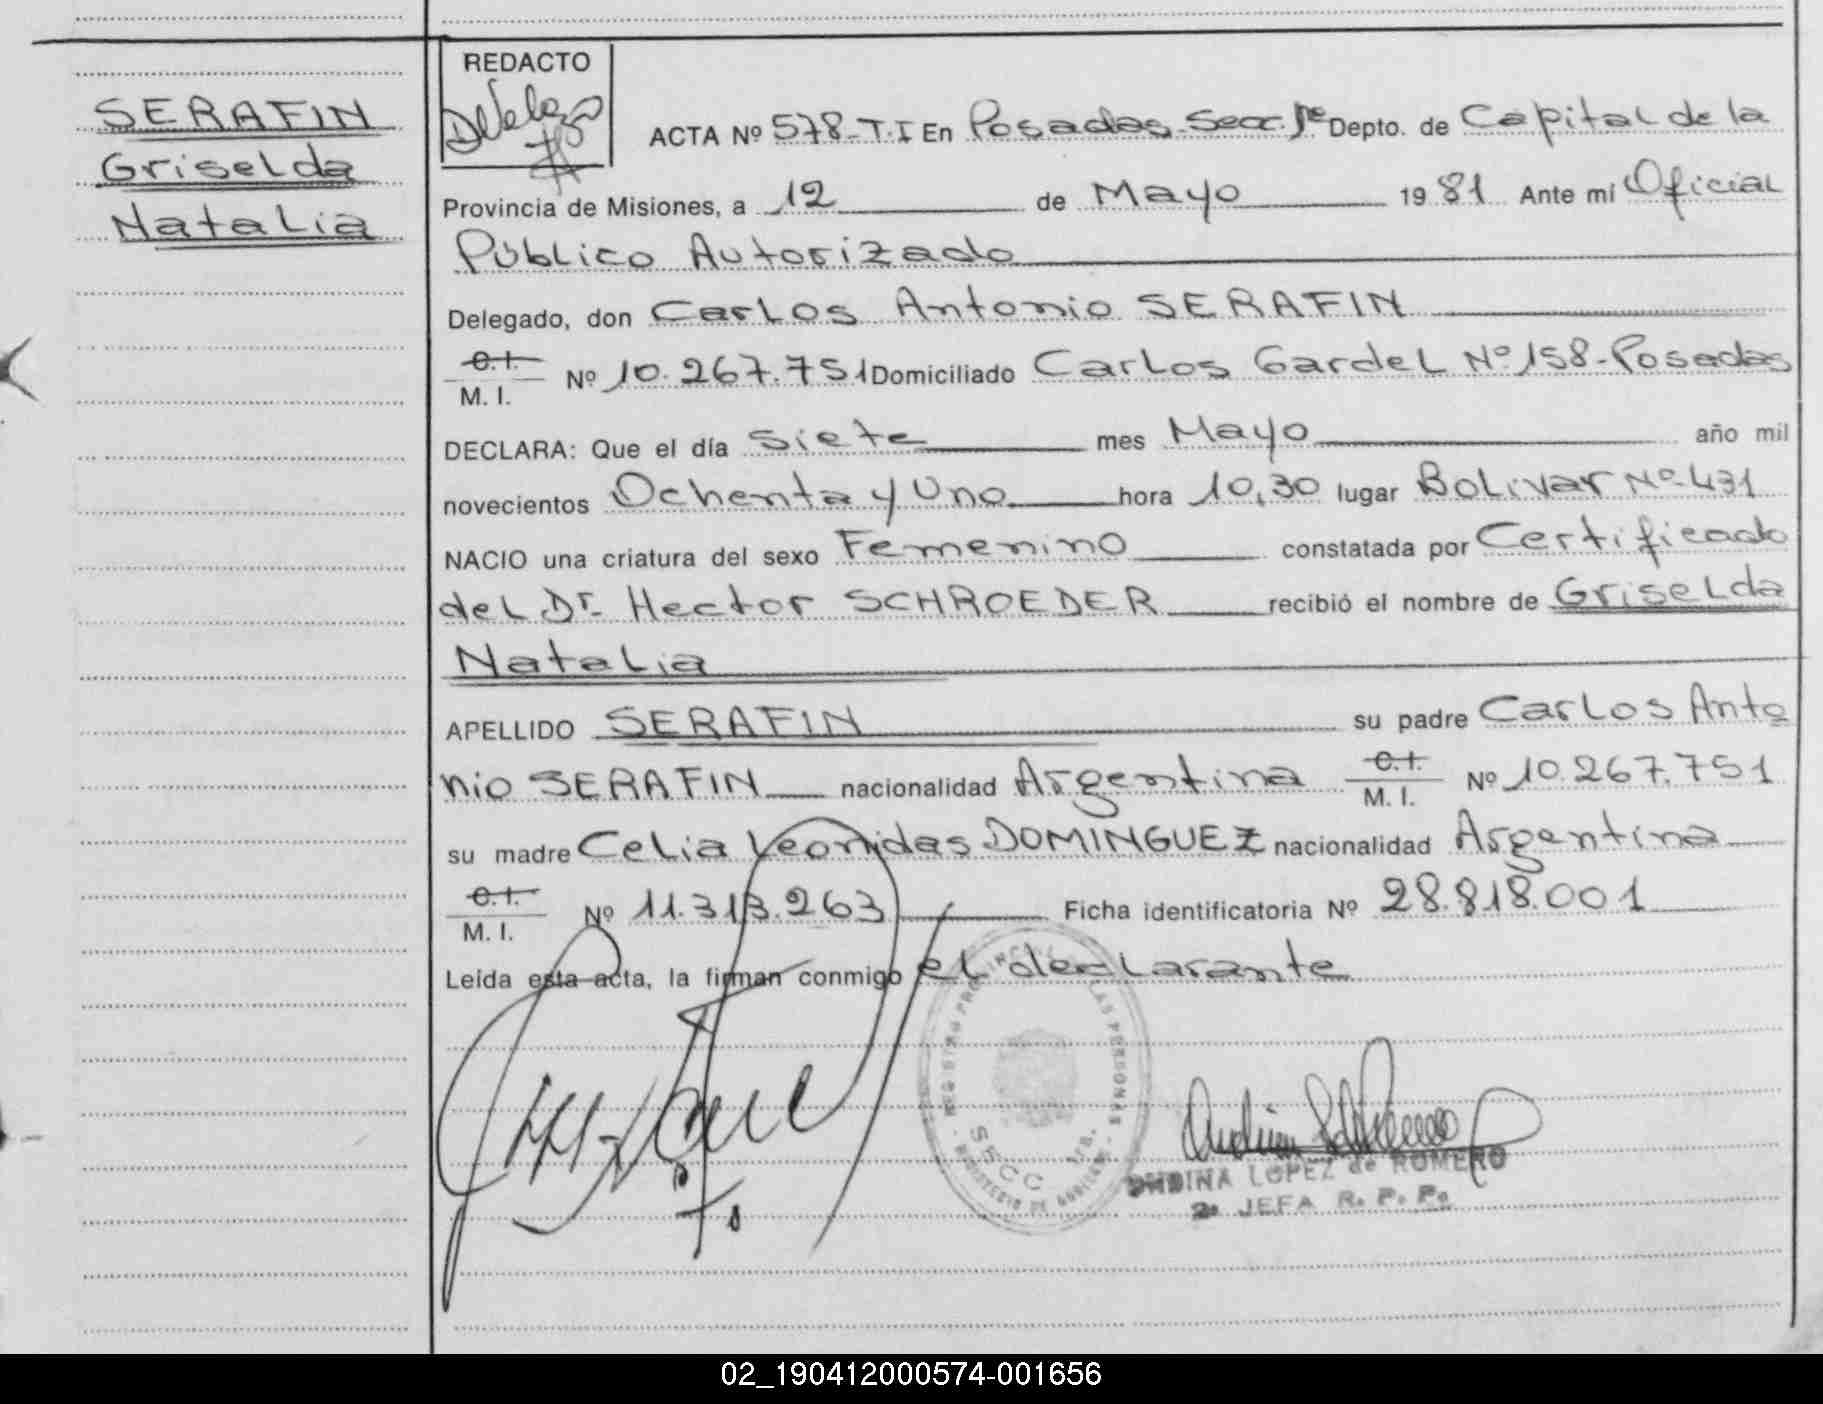 SERAFIN
Griselda
Natalia
REDACTO
ACTA Nº 578-T.I En Posadas-Secc. 1ª Depto. de Capital de la
Provincia de Misiones, a 12 de Mayo 1981 Ante mí Oficial
Público Autorizado
Delegado, don Carlos Antonio SERAFIN
C.I.
M. I. Nº 10.267.751 Domiciliado Carlos Gardel Nº 158-Posadas
DECLARA: Que el día siete mes Mayo año mil
novecientos Ochenta y Uno hora 10,30 lugar Bolivar Nº 431
NACIO una criatura del sexo Femenino constatada por Certificado
del Dr. Hector SCHROEDER recibió el nombre de Griselda
Natalia
APELLIDO SERAFIN su padre Carlos Anto
nio SERAFIN nacionalidad Argentina C.I. M. I. Nº 10.267.751
su madre Celia Leonidas DOMINGUEZ nacionalidad Argentina
C.I.
M. I. Nº 11.313.263 Ficha identificatoria Nº 28.818.001
Leída esta acta, la firman conmigo el declarante
LAS PERSONAS
SECC
ONDINA LOPEZ de ROMERO
2ª JEFA R. P. P.
02_190412000574-001656